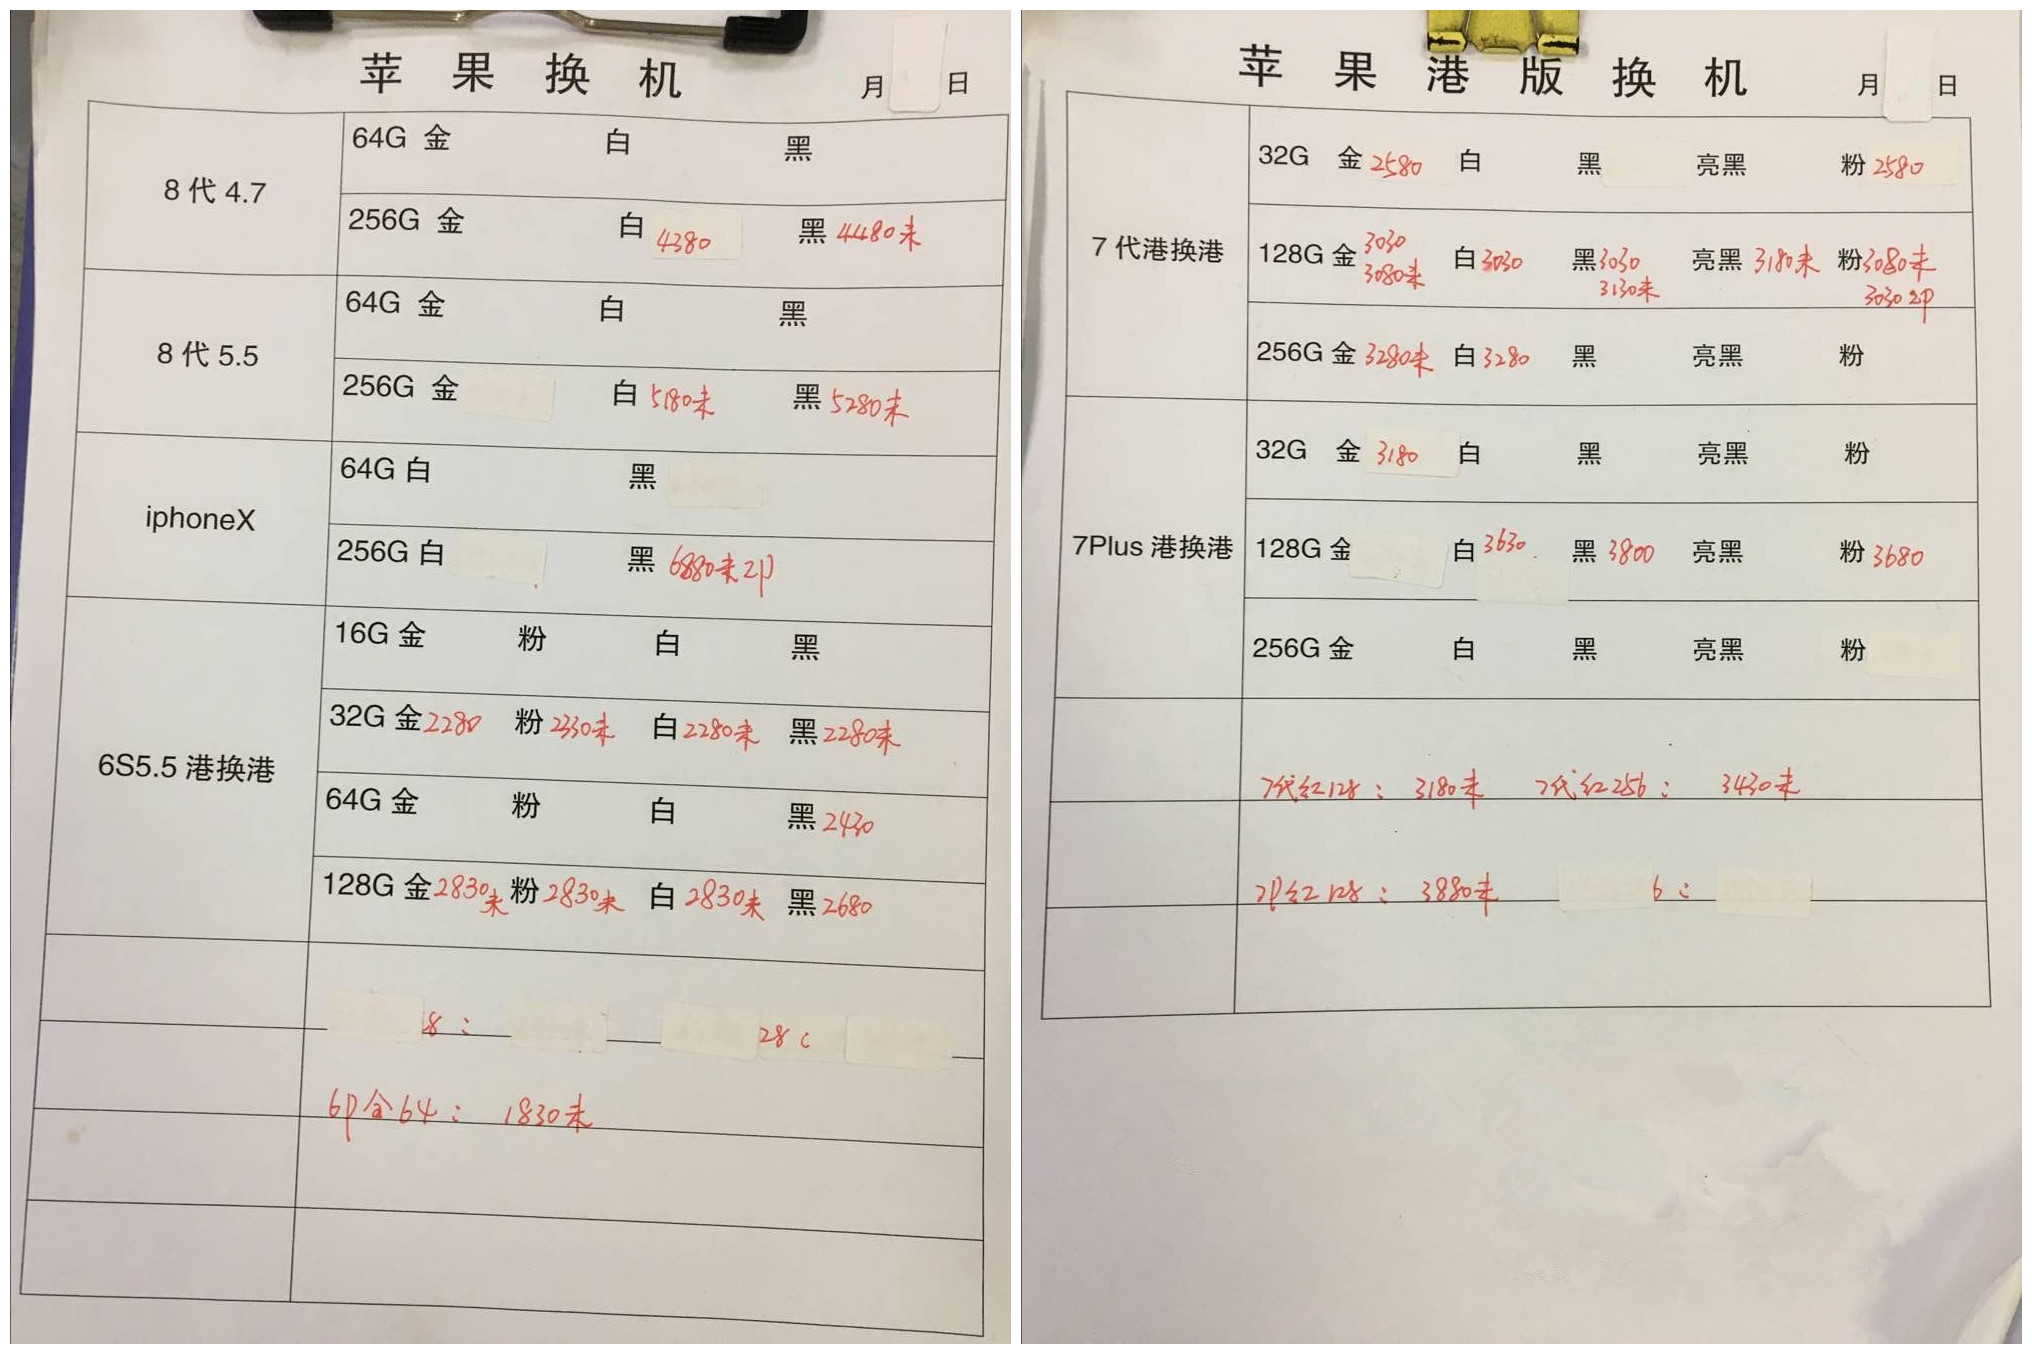 苹果换机 月 日
8代4.7
64G 金 白 黑
256G 金 白 4380 黑 4480未
8代5.5
64G 金 白 黑
256G 金 白 5180未 黑 5280未
iphoneX
64G 白 黑
256G 白 黑 6880未2P
6S5.5港换港
16G 金 粉 白 黑
32G 金 2280 粉 2330未 白 2280未 黑 2280未
64G 金 粉 白 黑 2430
128G 金 2830未 粉 2830未 白 2830未 黑 2680
8: 28:
6P金64: 1830未
苹果港版换机 月 日
7代港换港
32G 金 2580 白 黑 亮黑 粉 2580
128G 金 3030 白 3030 黑 3030 亮黑 3180未 粉 3080未
3080未 3130未 3030 2P
256G 金 3280未 白 3280 黑 亮黑 粉
7Plus港换港
32G 金 3180 白 黑 亮黑 粉
128G 金 白 3630 黑 3800 亮黑 粉 3680
256G 金 白 黑 亮黑 粉
7代红128: 3180未 7代红256: 3430未
7P红128: 3880未 6: